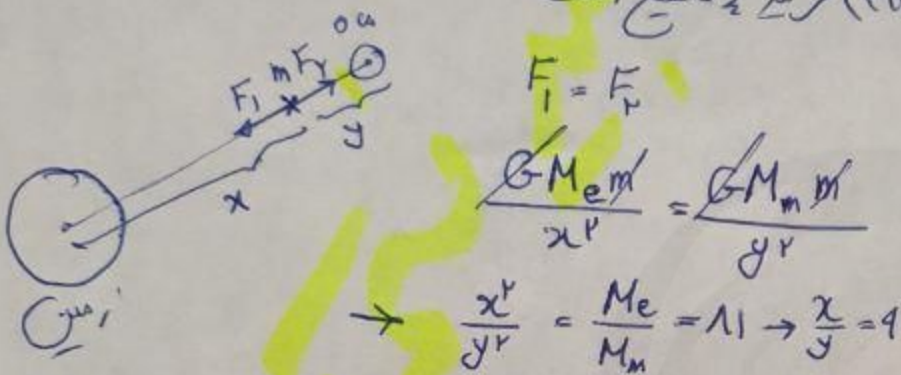 ماه
F₁ m F₂
y
x
زمین
F₁ = F₂
GMₑm / x² = GMₘm / y²
→ x²/y² = Mₑ/Mₘ = ۸۱ → x/y = ۹